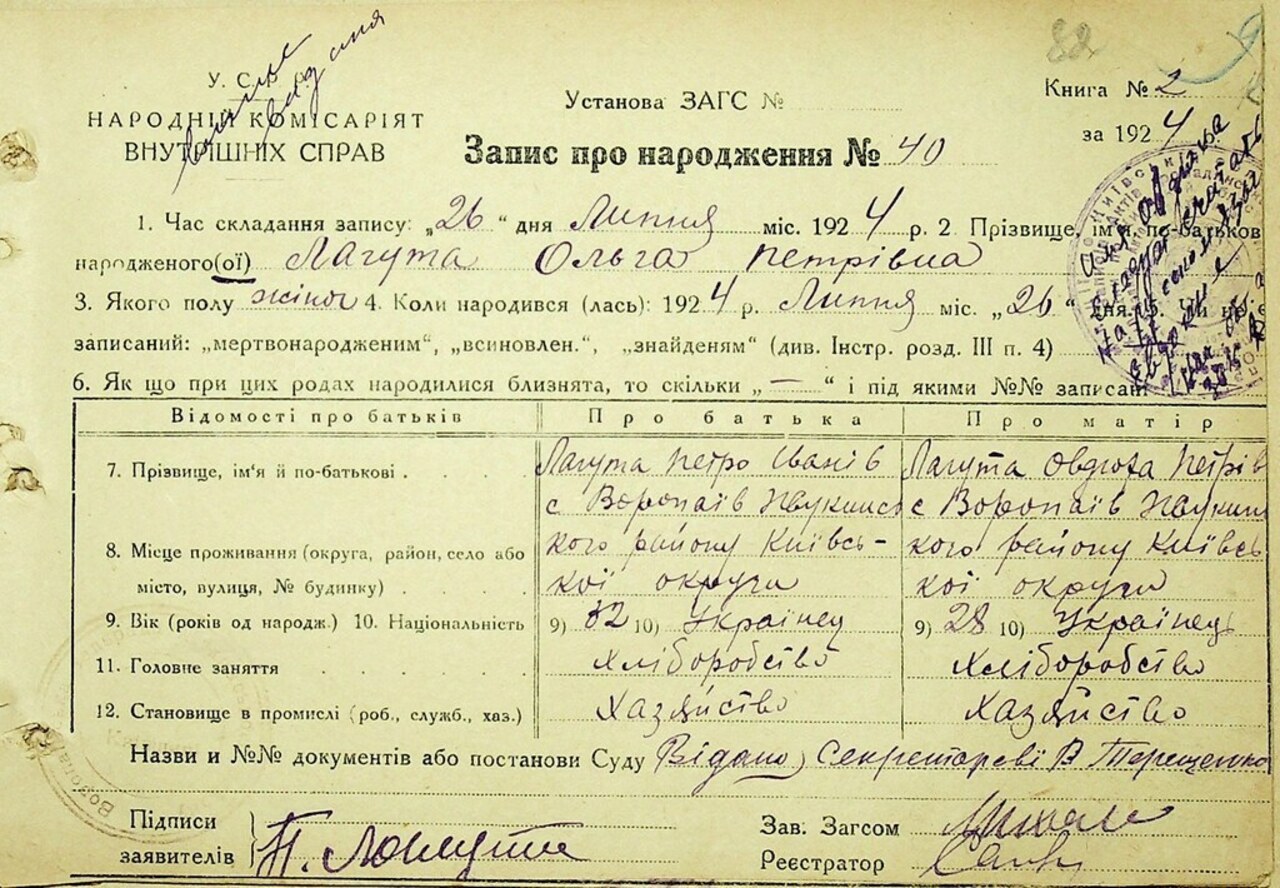 82
У. С. Р. Р.
НАРОДНІЙ КОМІСАРІЯТ
ВНУТРІШНІХ СПРАВ
Установа ЗАГС №
Книга № 2
за 1924
Запис про народження № 40
1. Час складання запису: „26“ дня Липня міс. 1924 р. 2 Прізвище, ім'я, по-батьков
народженого(ої) Лагута Ольга Петрівна
3. Якого полу жіноч 4. Коли народився (лась): 1924 р. Липня міс. „26“ дня. 5. Чи не є
записаний: „мертвонародженим“, „всиновлен.“, „знайденям“ (див. Інстр. розд. III п. 4)
6. Як що при цих родах народилися близнята, то скільки „—“ і під якими №№ записані
Відомості про батьків Про батька Про матір
7. Прізвище, ім'я й по-батькові . Лагута Петро Іванів Лагута Овдюха Петрів
с Воропаїв с Воропаїв
8. Місце проживання (округа, район, село або кого району Київсь- кого району Київсь
місто, вулиця, № будинку) кої округи кої округи
9. Вік (років од народж.) 10. Національність 9) 32 10) Українец 9) 28 10) Українець
11. Головне заняття Хліборобство Хліборобство
12. Становище в промислі (роб., служб., хаз.) Хазяйство Хазяйство
Назви и №№ документів або постанови Суду Відано Секретареві В Терещенко
Підписи
заявителів П.
Зав. Загсом
Реєстратор